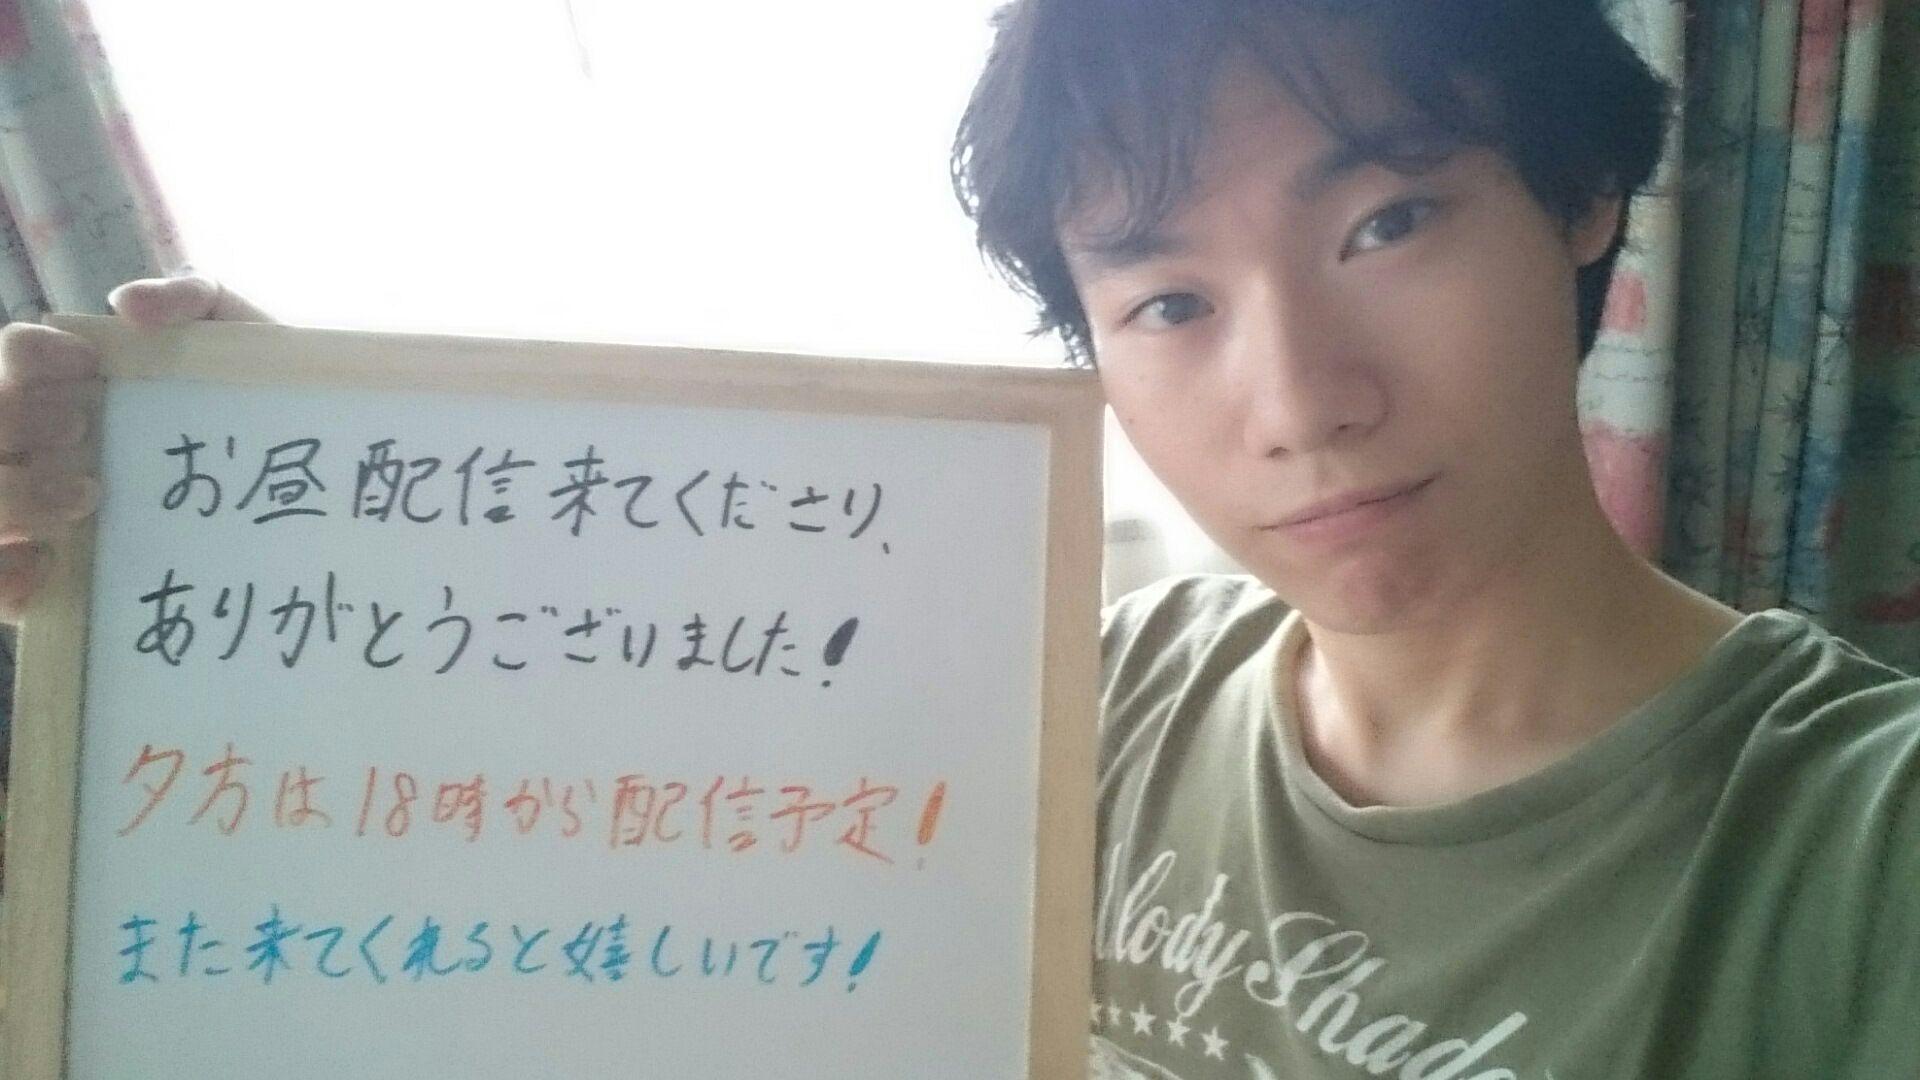 お昼配信来てくださり、
ありがとうございました!
夕方は18時から配信予定!
また来てくれると嬉しいです!